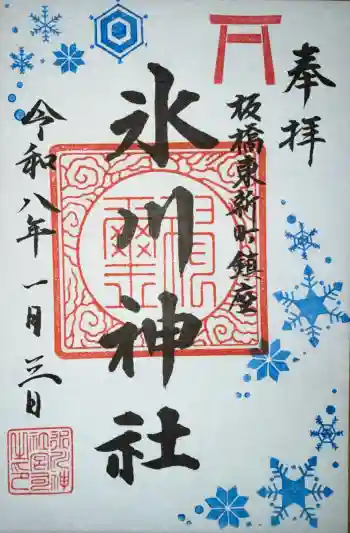 奉拝
板橋東新町鎮座
氷川神社
令和八年一月三日